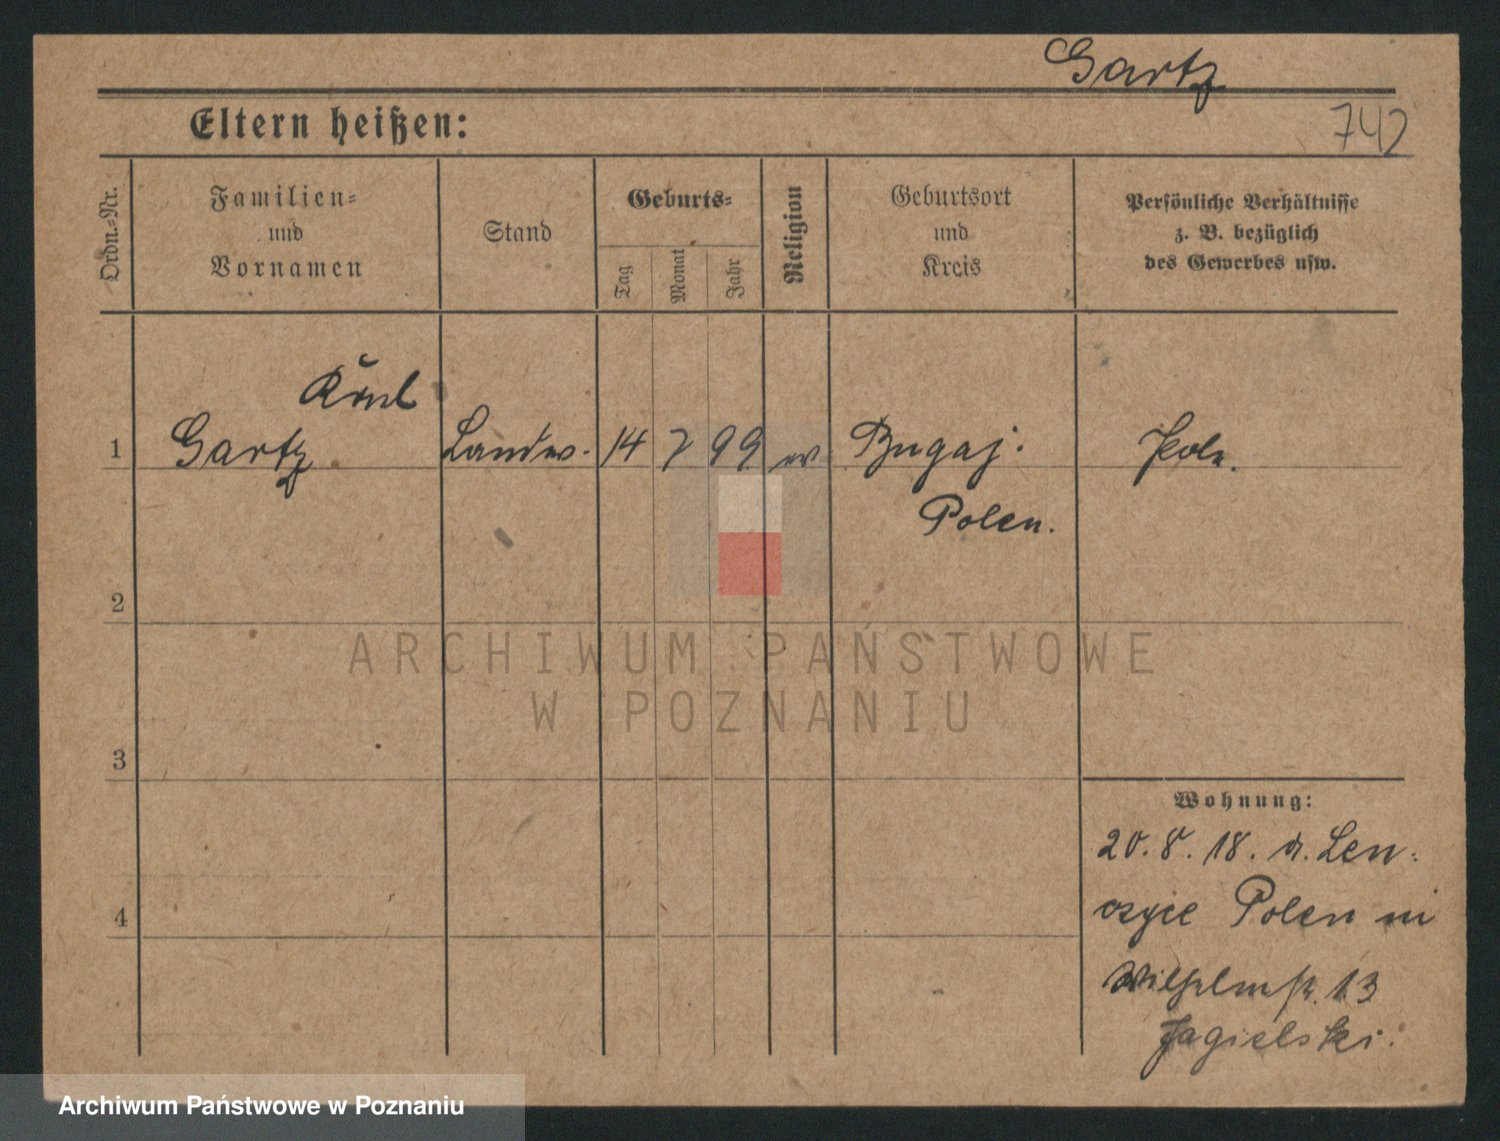 Gartz
742
Eltern heißen:
Ordn.-Nr.
Familien=
und
Vornamen
Stand
Geburts=
Tag
Monat
Jahr
Religion
Geburtsort
und
Kreis
Persönliche Verhältnisse
z. B. bezüglich
des Gewerbes usw.
Karl
1 Gartz 14 7 99 ev. Bugaj. Pole.
Polen.
2
ARCHIWUM PAŃSTWOWE
W POZNANIU
3
Wohnung:
20. 8. 18. a. Len=
czyce Polen
4
Wilhelmstr. 13
Jagielski.
Archiwum Państwowe w Poznaniu